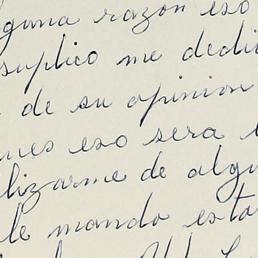 guna razon eso
suplico me dedi
de su opinion
ues eso sera
lizarme de algu
le mando esta